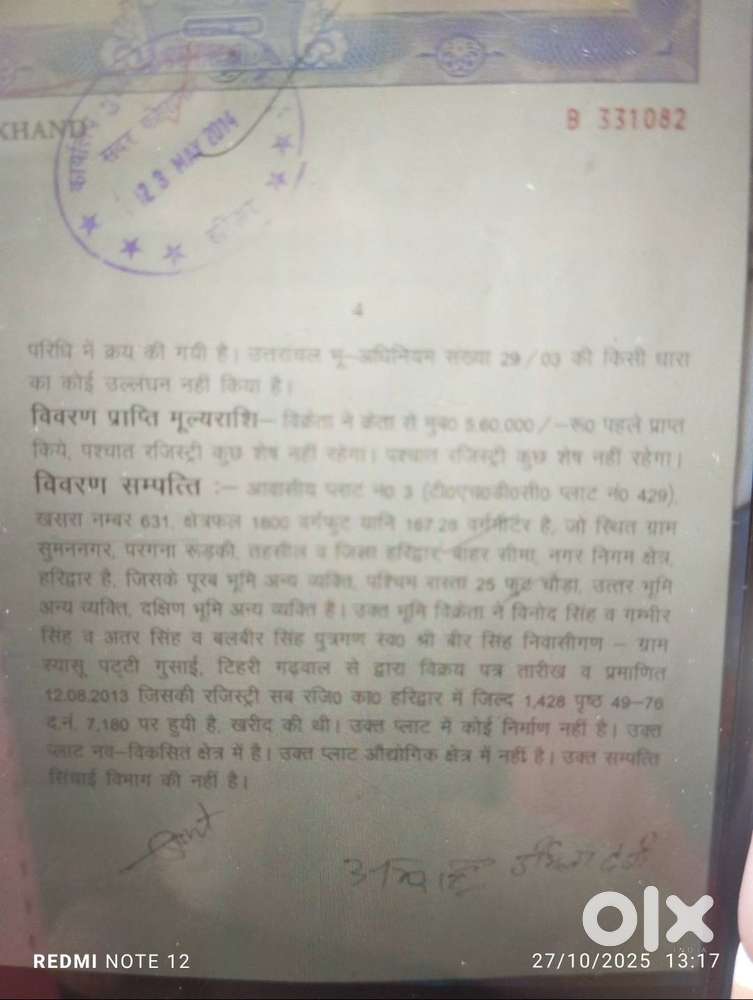 KHAND
B 331082
कार्यालय
सदर
23 MAY 2014
4
परिधि में क्रय की गयी है। उत्तरांचल भू-अधिनियम संख्या 29/03 की किसी धारा
का कोई उल्लंघन नहीं किया है।
विवरण प्राप्ति मूल्यराशि- विक्रेता ने क्रेता से मुब0 5,60,000/-रू0 पहले प्राप्त
किये, पश्चात रजिस्ट्री कुछ शेष नहीं रहेगा। पश्चात रजिस्ट्री कुछ शेष नहीं रहेगा।
विवरण सम्पत्ति :- आवासीय प्लाट नं0 3 (टी0एच0डी0सी0 प्लाट नं0 429),
खसरा नम्बर 631, क्षेत्रफल 1800 वर्गफुट यानि 167.28 वर्गमीटर है, जो स्थित ग्राम
सुमननगर, परगना रूड़की, तहसील व जिला हरिद्वार बाहर सीमा, नगर निगम क्षेत्र,
हरिद्वार है, जिसके पूरब भूमि अन्य व्यक्ति, पश्चिम रास्ता 25 फुट चौड़ा, उत्तर भूमि
अन्य व्यक्ति, दक्षिण भूमि अन्य व्यक्ति है। उक्त भूमि विक्रेता ने विनोद सिंह व गम्भीर
सिंह व अतर सिंह व बलबीर सिंह पुत्रगण स्व0 श्री बीर सिंह निवासीगण - ग्राम
स्यासू पट्टी गुसाई, टिहरी गढ़वाल से द्वारा विक्रय पत्र तारीख व प्रमाणित
12.08.2013 जिसकी रजिस्ट्री सब रजि0 का0 हरिद्वार में जिल्द 1,428 पृष्ठ 49-76
द.नं. 7,180 पर हुयी है, खरीद की थी। उक्त प्लाट में कोई निर्माण नहीं है। उक्त
प्लाट नव-विकसित क्षेत्र में है। उक्त प्लाट औद्योगिक क्षेत्र में नहीं है। उक्त सम्पत्ति
सिंचाई विभाग की नहीं है।
देवी
olx
INDIA
REDMI NOTE 12
27/10/2025 13:17